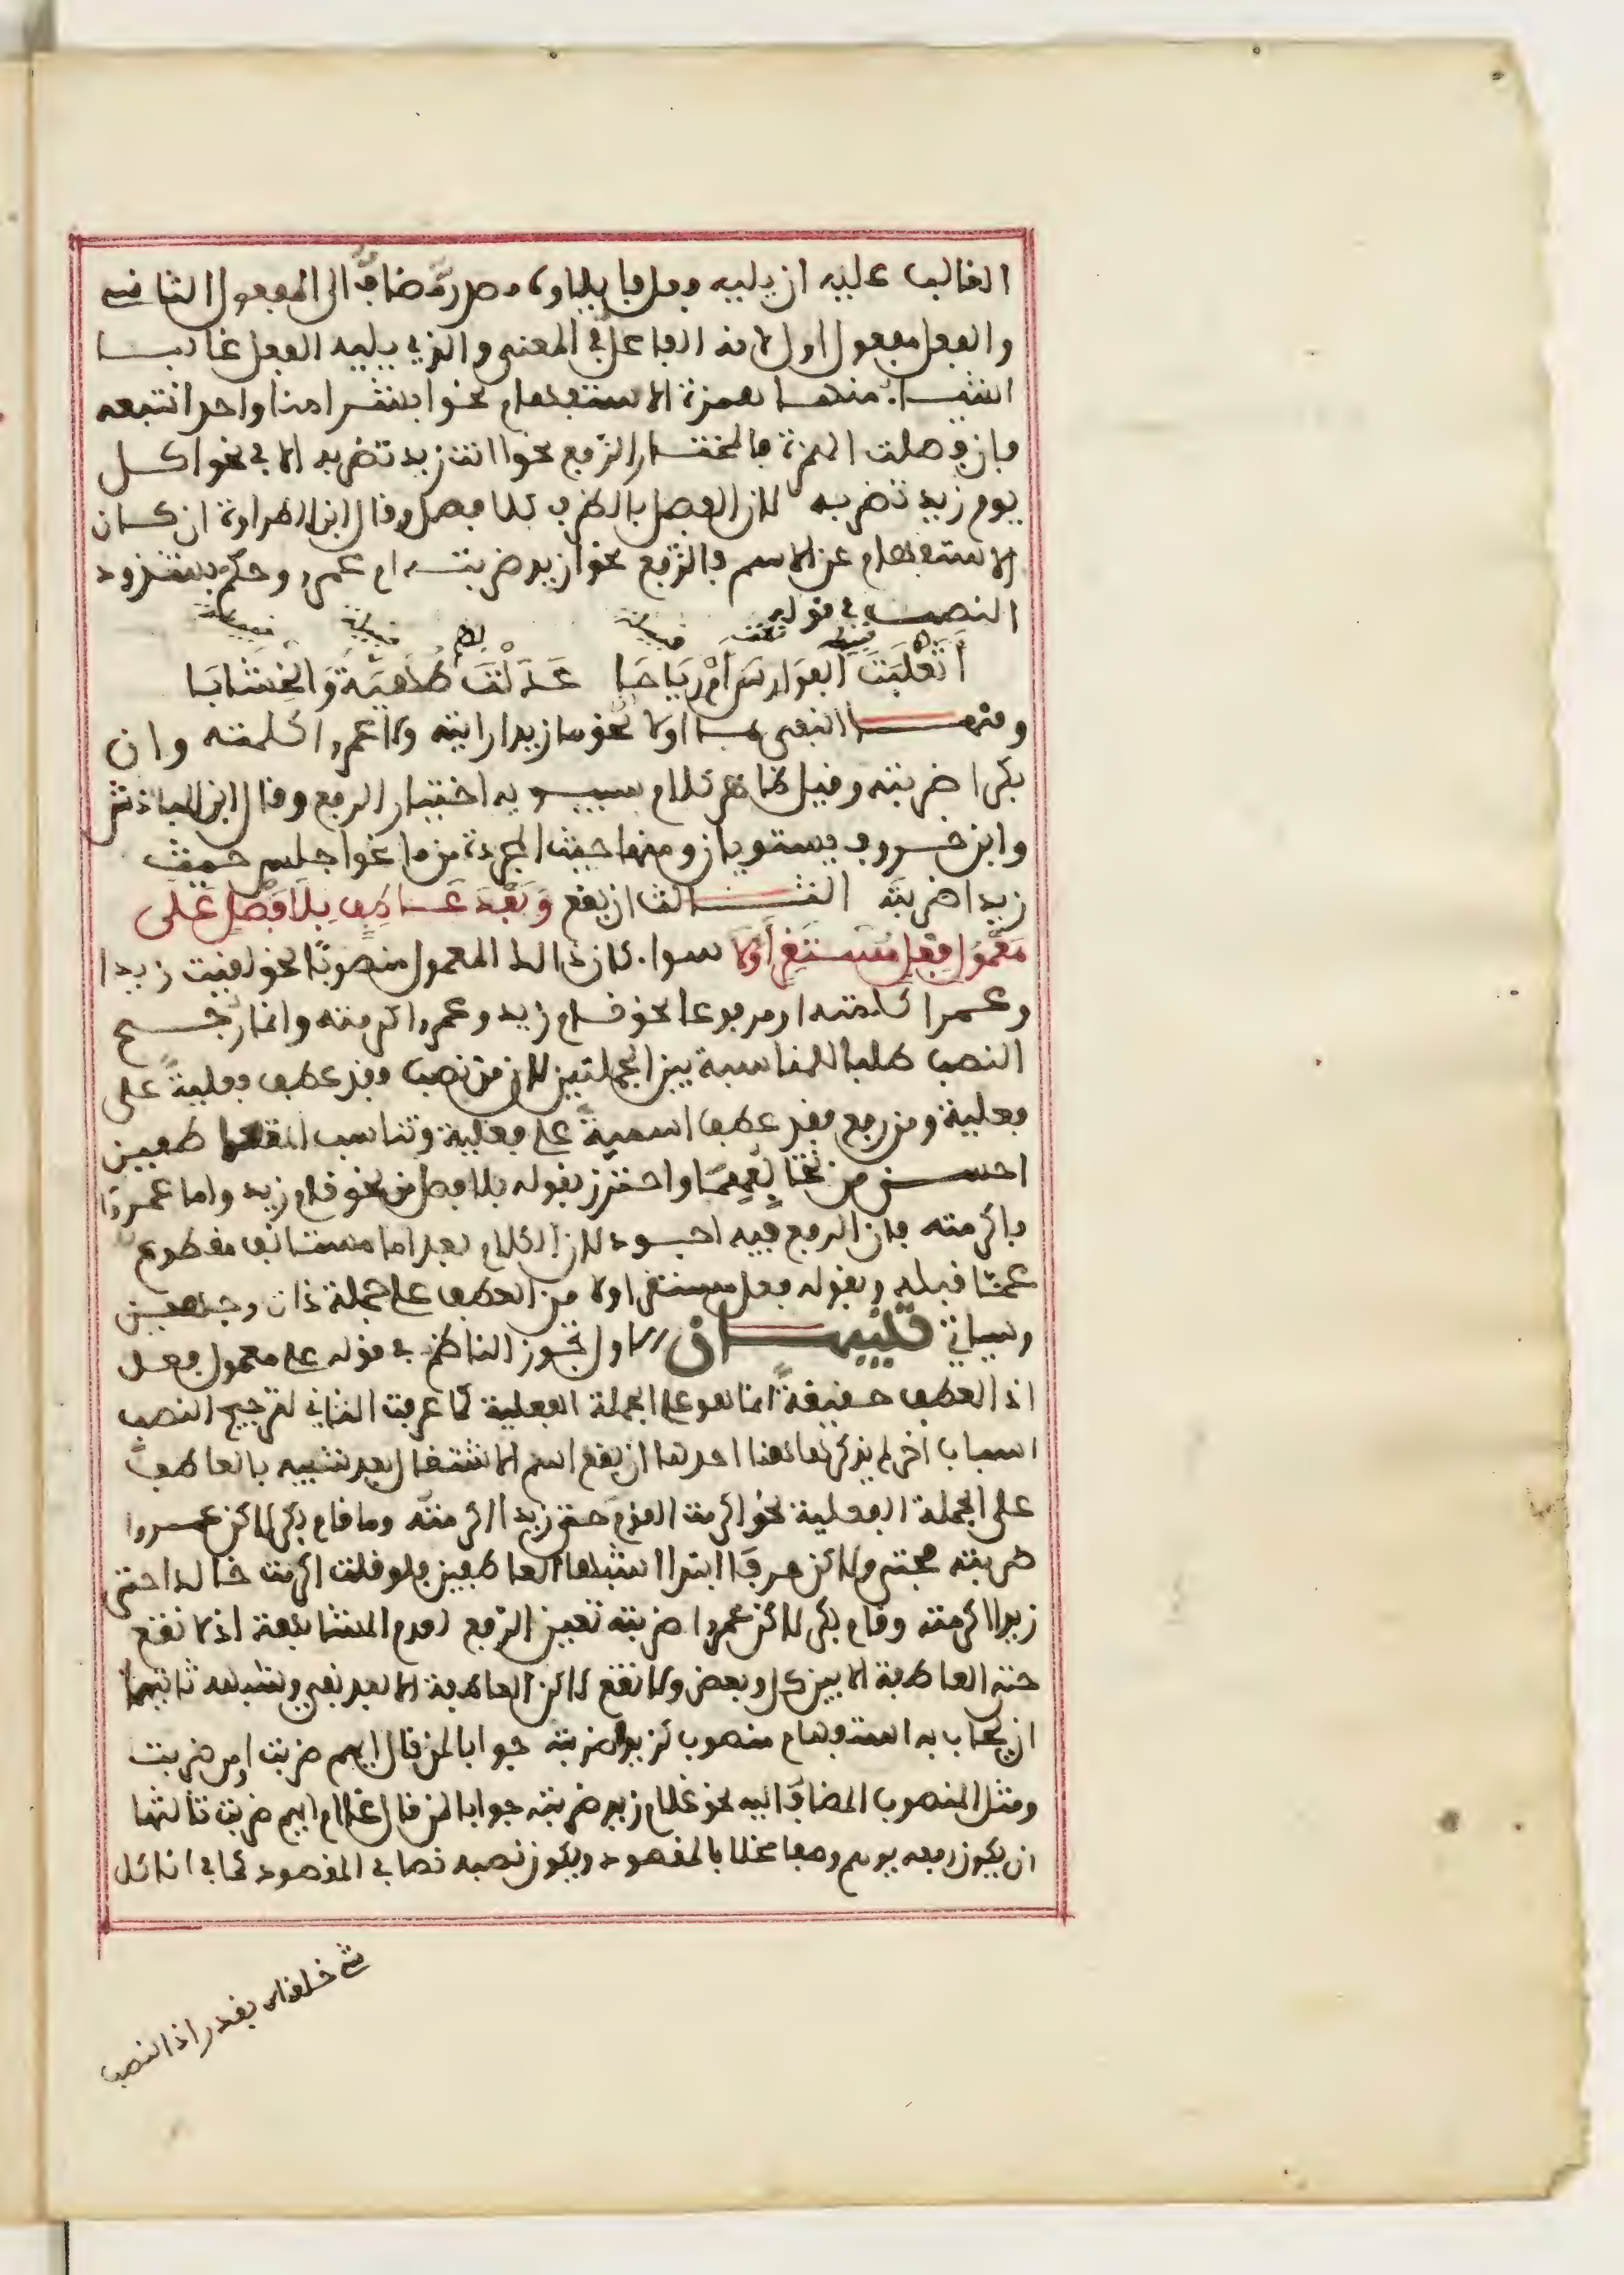 الغالب عليه ان يليه فعل فايلاوه مصدر مضاف الى المفعول الثاني
والفعل مفعول اول لانه الفاعل في المعنى والذي يليه الفعل غالبا
اشياء منها همزة الاستفهام نحو ابشرا منا واحدا نتبعه
فان فصلت الهمزة فالمختار الرفع نحو اانت زيد تضربه الا في نحو اكل
يوم زيد تضربه لان الفصل بالظرف كلا فصل وقال ابن الطراوة ان كان
الاستفهام عن الاسم فالرفع نحو ازيد ضربته ام عمرو وحكم بشذوذ
النصب في قوله
أَثَعْلَبَةَ الفَوَارِسَ أَمْ رِيَاحَا عَدَلْتَ طُهَيَّةَ وَالخِشَابَا
ومنها النفي بما اولا نحو ما زيدا رايته ولا عمرا كلمته وان
بكرا ضربته وقيل ظاهر كلام سيبويه اختيار الرفع وقال ابن الباذش
وابن خروف يستويان ومنها حيث المجردة من ما نحو اجلس حيث
زيدا ضربته الثالث ان يقع وَبَعْدَ عَاطِفٍ بِلَا فَصْلٍ عَلَى
مَعْمُولِ فِعْلٍ مُسْتَقِرٍّ أَوَّلَا سواء كان ذالك المعمول منصوبا نحو لقيت زيدا
وعمرا كلمته او مرفوعا نحو قام زيد وعمرا اكرمته وانما رجح
النصب طلبا للمناسبة بين الجملتين لان من نصب فقد عطف فعلية على
فعلية ومن رفع فقد عطف اسمية على فعلية وتناسب المتعاطفين
احسن من تخالفهما واحترز بقوله بلا فصل من نحو قام زيد واما عمرو
فاكرمته فان الرفع فيه اجود لان الكلام بعد اما مستانف مقطوع
عما قبله وبقوله فعل مستقر اولا من العطف على جملة ذات وجهين
وسياتي تنبيهان الاول تجوز الناظم في قوله على معمول فعل
اذ العطف حقيقة انما هو على الجملة الفعلية كما عرفت الثاني لترجيح النصب
اسباب اخر لم يذكرها هاهنا احدها ان يقع اسم الاشتغال بعد شبيه بالعاطف
على الجملة الفعلية نحو اكرمت القوم حتى زيدا اكرمته وما قام بكر لاكن عمروا
ضربته فحتى ولاكن حرفا ابتدا اشبها العاطفين فلو قلت اكرمت خالدا حتى
زيد اكرمته وقام بكر لاكن عمرو ضربته تعين الرفع لعدم المشابهة اذ لا تقع
حتى العاطفة الا بين كل وبعض ولا تقع لاكن العاطفة الا بعد نفي وشبهه ثانيها
ان يجاب به استفهام منصوب كزيدا ضربته جوابا لمن قال ايهم ضربت او من ضربت
ومثل المنصوب المضاف اليه نحو غلام زيد ضربته جوابا لمن قال غلام ايهم ضربت ثالثها
ان يكون رفعه يوهم وصفا مخلا بالمقصود ويكون نصبه نصا في المقصود كما في انا كل
شيء خلقناه بقدر اذ النصب